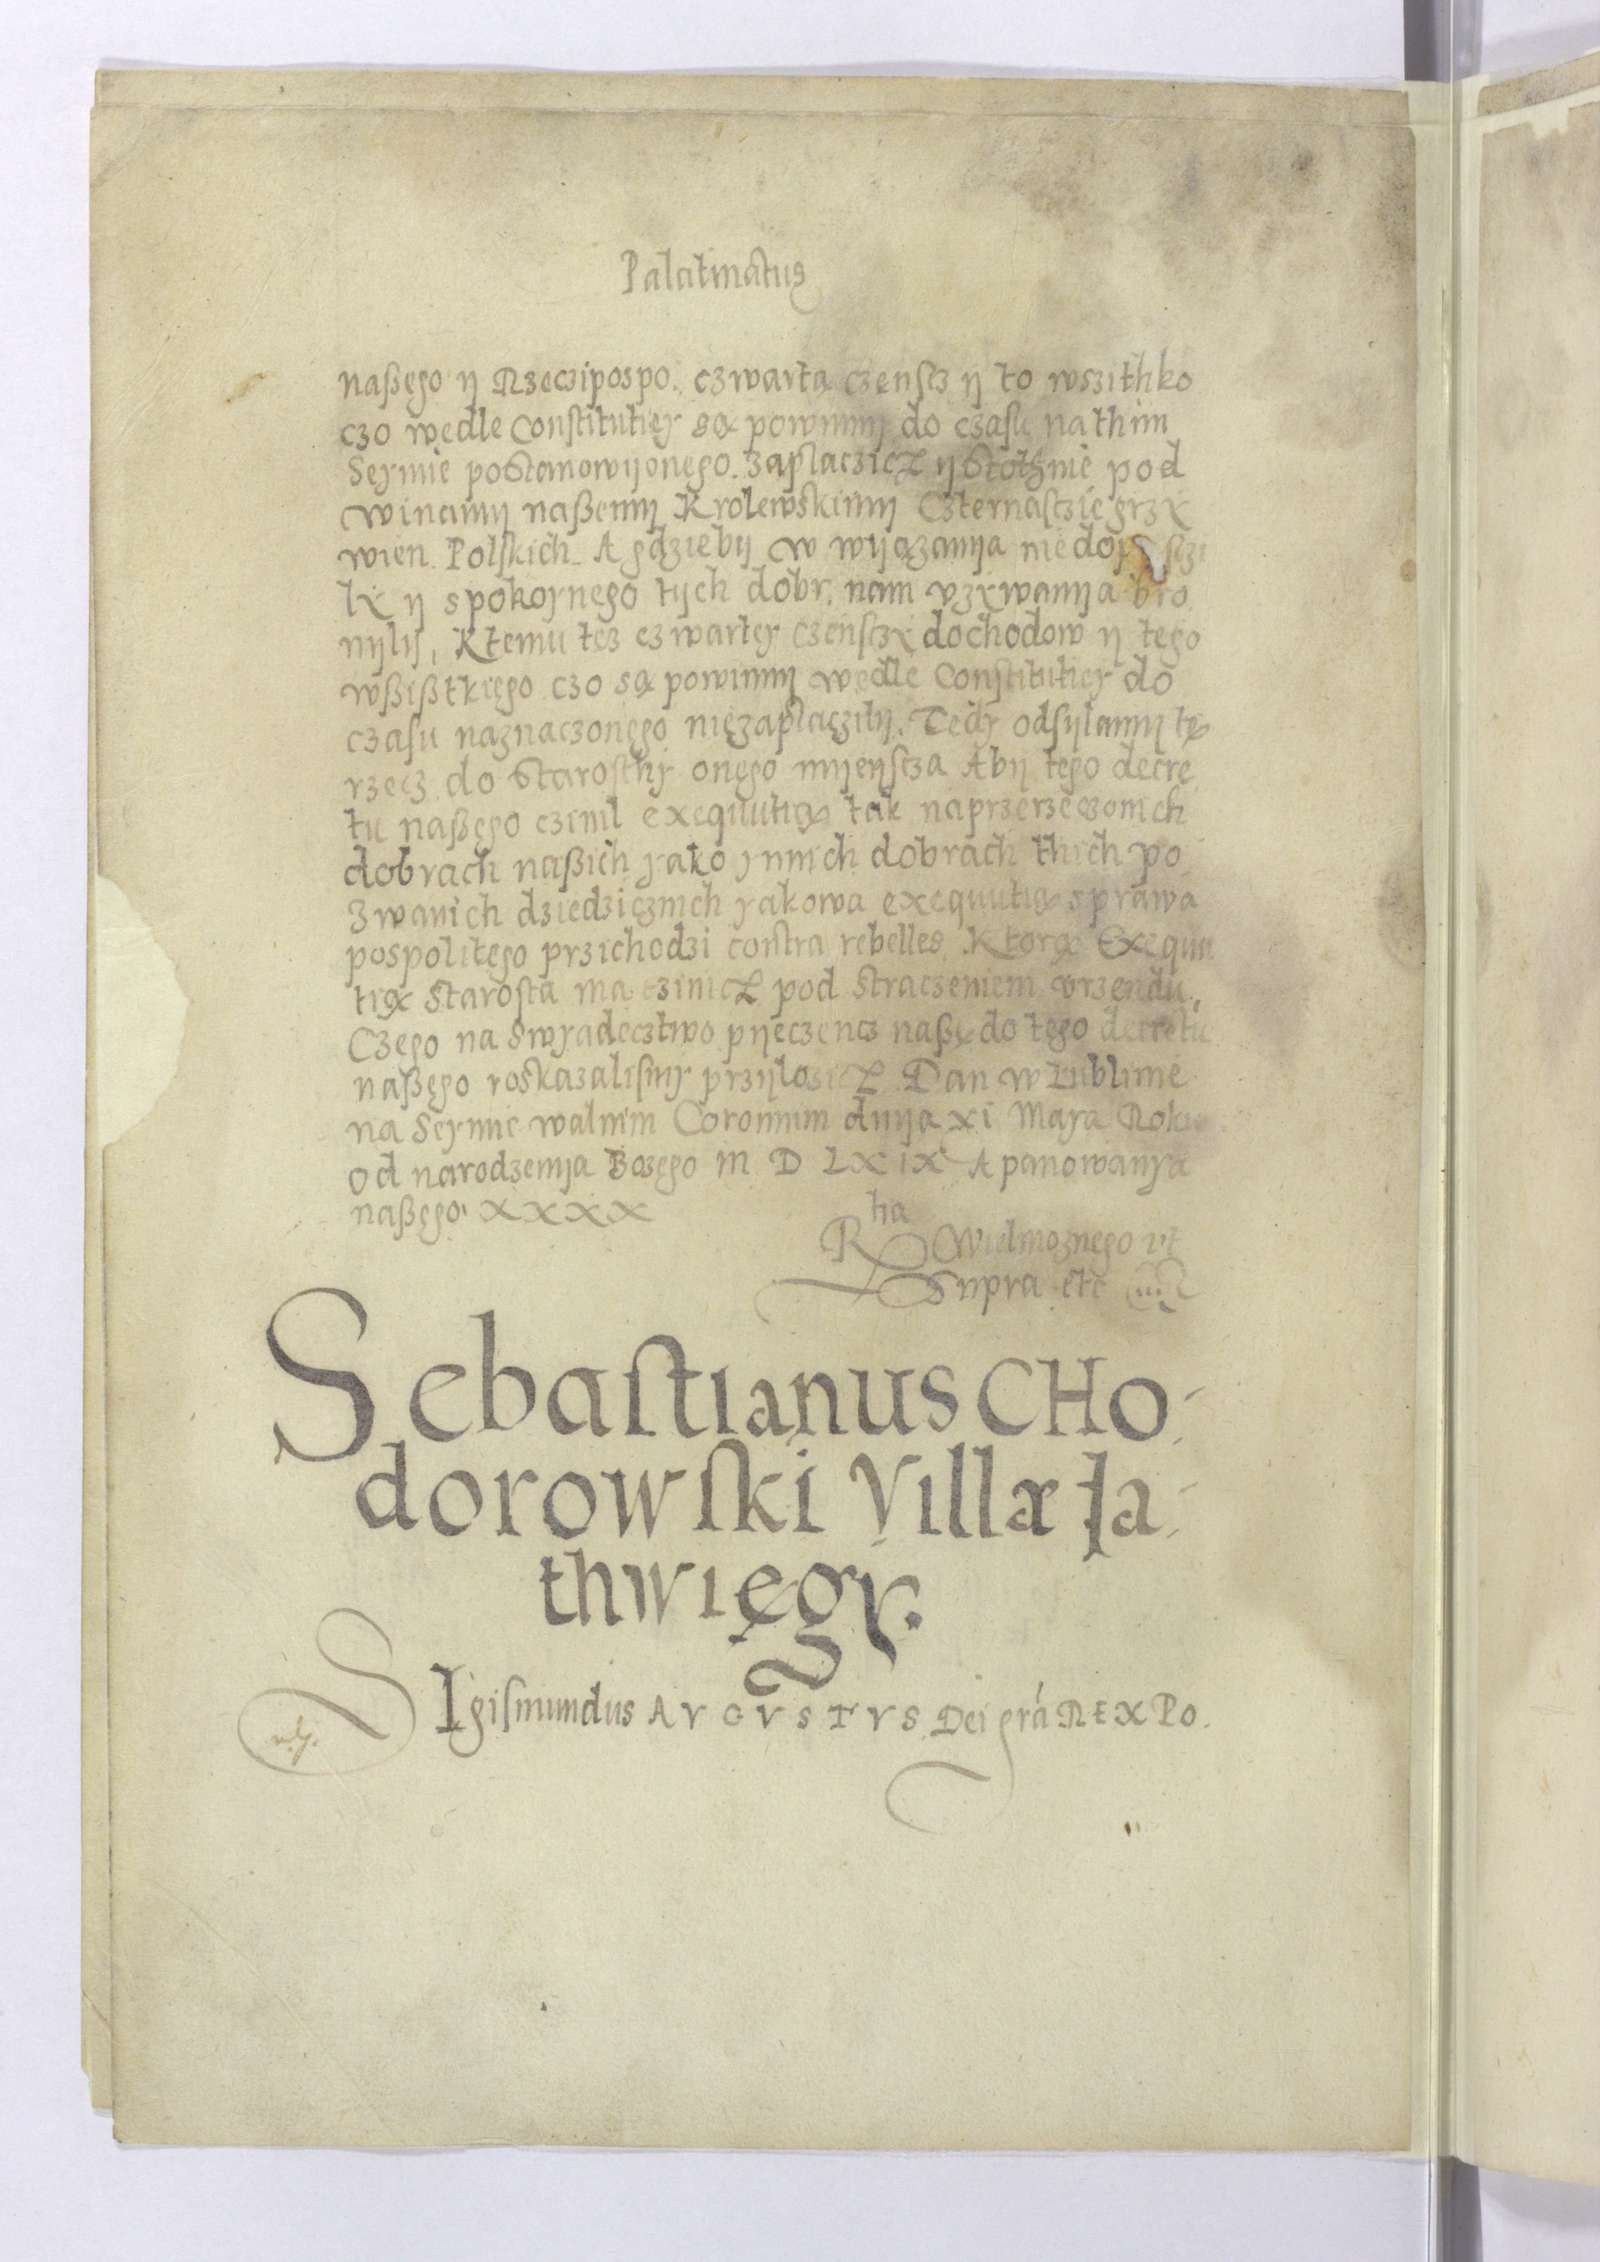 Palatinatus
naßęgo ÿ Rzeczipospo. czwartą czenscz ÿ to wszithko
czo wedle Constitutiey są powinnÿ do czasu na thim
Seymie postanowÿonęgo. zaplaczicz ÿ Stothnie pod
winamÿ naßemÿ Krolewskimÿ Czternasczię grzy
wien Polskich. A gdziebÿ w wÿązanÿa niedop
ly ÿ spokoynego tÿch dobr. nam vzÿwanÿa bro
nÿlÿ, Ktemu tez czwartey czensczy dochodow ÿ tego
wßißtkięgo czo są powinnÿ wędle Constitutiey do
czasu naznaczonęgo nięzaplaczilÿ. Tedy odsÿlamÿ tę
rzecz do Starosthy onęgo mÿeÿscza Abÿ tęgo decre
tu naßęgo czinil exequutią tak naprzerzeczonich
dobrach naßich yako ynnich dobrach thich po
zwanich dziedzicznich yakowa exequutią sprawa
pospolitęgo przichodzi contra rebelles. Ktorą Exequu
tią Starosta ma czinicz pod straczeniem vrzendu,
Częgo na swyadecztwo pÿeczencz naßę do tęgo decretu
naßęgo roskazalismy przÿlozicz Dan w Lublinie
na Seymie walnim Coronnim dnÿa xi Maya Roku
od narodzenÿa Bozęgo M D LXIX A panowanÿa
naßęgo XXXX
R tia Wielmoznego vt
Supra etc
Sebastianus CHo-
dorowski Villæ Ja-
thwięgy.
SIgismundus AVGVSTVS Dei gra REX Po.